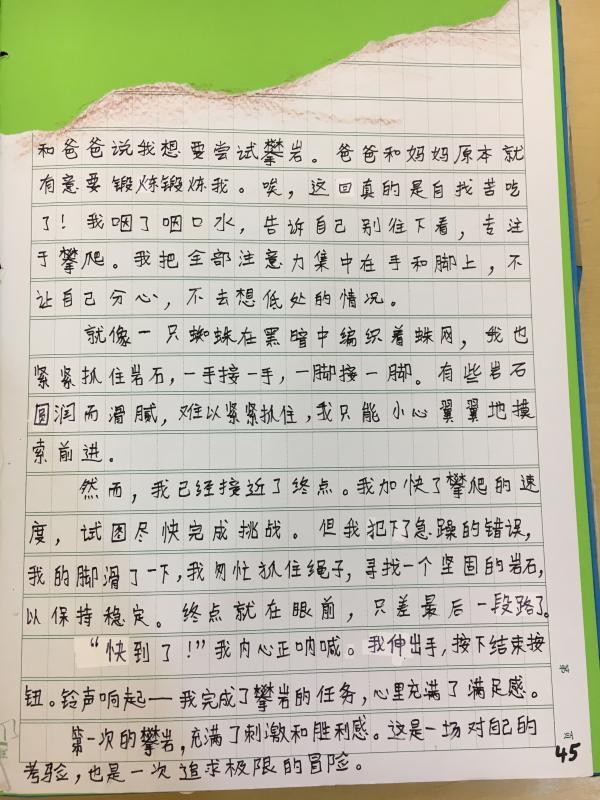 和爸爸说我想要尝试攀岩。爸爸和妈妈原本就
有意要锻炼锻炼我。唉，这回真的是自找苦吃
了！我咽了咽口水，告诉自己别往下看，专注
于攀爬。我把全部注意力集中在手和脚上，不
让自己分心，不去想低处的情况。
就像一只蜘蛛在黑暗中编织着蛛网，我也
紧紧抓住岩石，一手接一手，一脚接一脚。有些岩石
圆润而滑腻，难以紧紧抓住，我只能小心翼翼地摸
索前进。
然而，我已经接近了终点。我加快了攀爬的速
度，试图尽快完成挑战。但我犯下了急躁的错误，
我的脚滑了一下，我匆忙抓住绳子，寻找一个坚固的岩石，
以保持稳定。终点就在眼前，只差最后一段路了。
“快到了！”我内心正呐喊。我伸出手，按下结束按
钮。铃声响起——我完成了攀岩的任务，心里充满了满足感。
第一次的攀岩，充满了刺激和胜利感。这是一场对自己的
考验，也是一次追求极限的冒险。
45